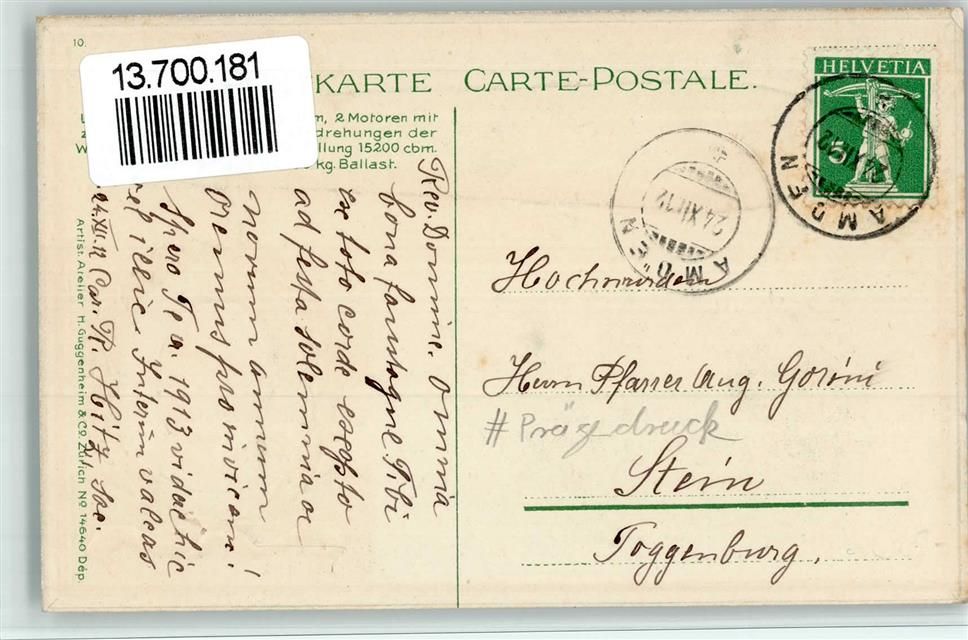 10.
13.700.181
KARTE CARTE-POSTALE.
m, 2 Motoren mit
drehungen der
llung 15200 cbm.
kg. Ballast.
HELVETIA
5
AMDEN
24.XII.12
AMDEN
24.XII.12
Rev. Domine. Omnia
bona faustaque Tibi
ex toto corde exopto
ad festa solemnia ac
novum annum!
Oremus pro invicem!
Spero Te a. 1913 videre hic
vel illic. Interim valeas
24.XII.12 Car. Hitz sac.
Hochwürden
Herrn Pfarrer Aug. Gorini
#Prägedruck
Stein
Toggenburg.
Artist. Atelier H. Guggenheim & Co., Zürich No 14640 Dép.